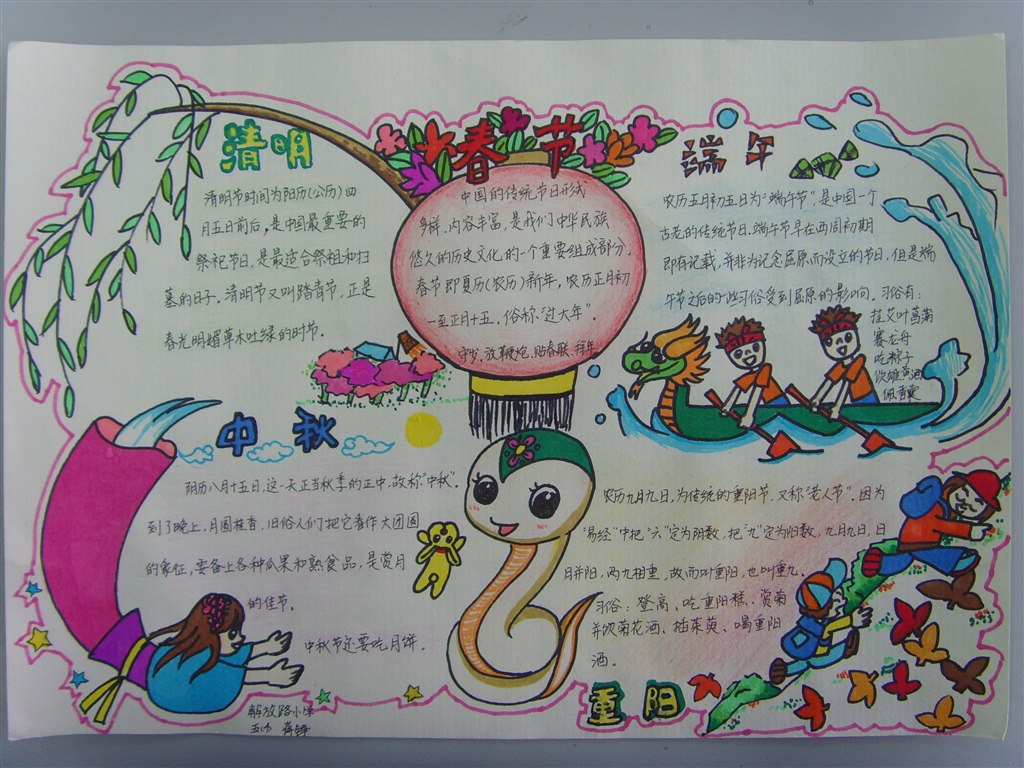 清明
清明节时间为阳历(公历)四
月五日前后,是中国最重要的
祭祀节日,是最适合祭祖和扫
墓的日子。清明节又叫踏青节,正是
春光明媚草木吐绿的时节。
春节
中国的传统节日形式
多样,内容丰富,是我们中华民族
悠久的历史文化的一个重要组成部分
春节即夏历(农历)新年,农历正月初
一至正月十五,俗称,"过大年"。
守岁、放鞭炮、贴春联、拜年
端午
农历五月初五日为"端午节",是中国一个
古老的传统节日.端午节早在西周初期
即有记载,并非为记念屈原而设立的节日,但是端
午节之后的一些习俗受到屈原的影响。习俗有:
挂艾叶菖蒲
赛龙舟
吃粽子
饮雄黄酒
佩香囊
中秋
阴历八月十五日,这一天正当秋季的正中,故称"中秋"。
到了晚上,月圆桂香,旧俗人们把它看作大团圆
的象征,要备上各种瓜果和熟食品,是赏月
的佳节。
中秋节还要吃月饼。
解放路小学
农历九月九日,为传统的重阳节,又称"老人节"。因为
"易经"中把"六"定为阴数,把"九"定为阳数,九月九日,日
月并阳,两九相重,故而叫重阳,也叫重九。
习俗:登高、吃重阳糕、赏菊
并饮菊花酒、插茱萸、喝重阳
酒。
重阳